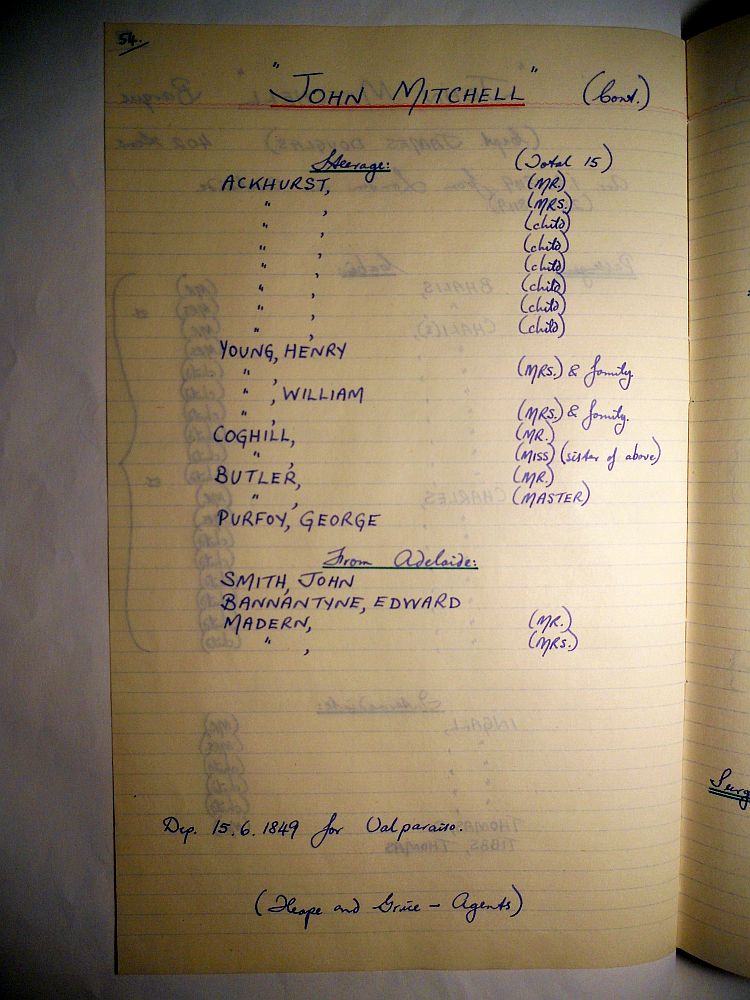 54.
"JOHN MITCHELL" (Cont.)
Steerage: (Total 15)
ACKHURST, (MR.)
" , (MRS.)
" , (child)
" , (child)
" , (child)
" , (child)
" , (child)
" , (child)
YOUNG, HENRY
" , (MRS.) & family
" , WILLIAM
" , (MRS.) & family.
COGHILL, (MR.)
" , (MISS) (sister of above)
BUTLER, (MR.)
" , (MASTER)
PURFOY, GEORGE
From Adelaide:
SMITH, JOHN
BANNANTYNE, EDWARD
MADERN, (MR.)
" , (MRS.)
Dep. 15.6.1849 for Valparaiso.
(Heape and Grice – Agents)
Surg